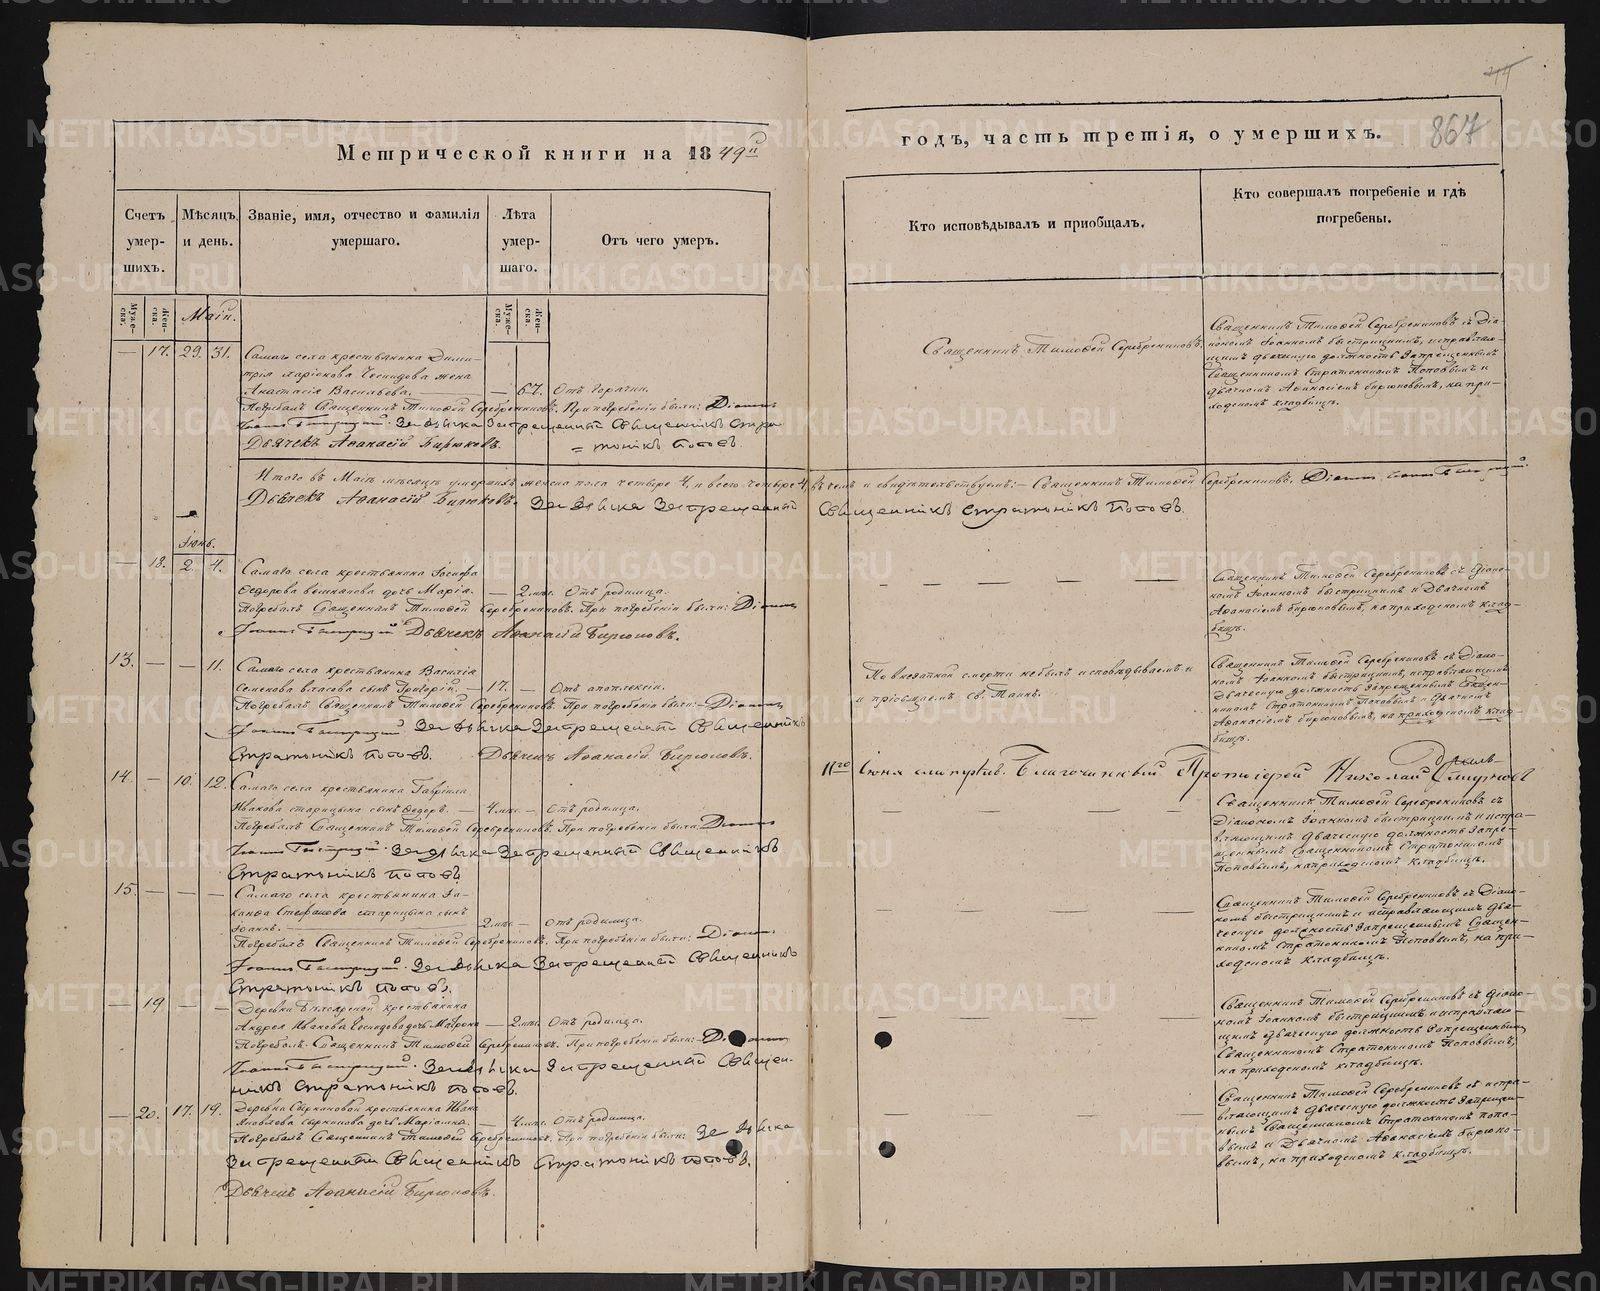 Метрической книги на 1849й
годъ, часть третія, о умершихъ.
867
Счетъ умер-шихъ.
Мѣсяцъ и день.
Званіе, имя, отчество и фамилія умершаго.
Лѣта умер-шаго.
Отъ чего умеръ.
Кто исповѣдывалъ и пріобщалъ.
Кто совершалъ погребеніе и гдѣ погребены.
Муже-ска.
Жен-ска.
Муже-ска.
Жен-ска.
Маій.
— 17. 29. 31. Самаго села крестьянина Дими-
трія Ларіонова жена
Анастасія Васильева. — 67. Отъ горячки.
Погребалъ Священникъ Тимоѳей Серебренниковъ. При погребеніи были: Діаконъ
Іоаннъ Быстрицкій. За дьячка Запрещенный Священникъ Стра-
Дьячекъ Аѳанасій Бирюковъ. = тоникъ Поповъ.
Священникъ Тимоѳей Серебренниковъ.
Священникъ Тимоѳей Серебренниковъ съ Діа-
кономъ Іоанномъ Быстрицкимъ, исправляю-
щимъ дьяческую должность Запрещеннымъ
Священникомъ Стратоникомъ Поповымъ и
дьячкомъ Аѳанасіемъ Бирюковымъ, на при-
ходскомъ кладбищѣ.
Итого въ Маіѣ мѣсяцѣ умершихъ женска пола четыре 4, и всего четыре 4, въ чемъ и свидѣтельствуемъ:— Священникъ Тимоѳей Серебренниковъ. Діаконъ Іоаннъ Быстрицкій.
Дьячекъ Аѳанасій Бирюковъ. За дьячка Запрещенный Священникъ Стратоникъ Поповъ.
Іюнь.
— 18. 2. 4. Самаго села крестьянина Іосифа
Ѳедорова дочь Марія. — 2.мѣс. Отъ родимца.
Погребалъ Священникъ Тимоѳей Серебренниковъ. При погребеніи были: Діаконъ
Іоаннъ Быстрицкій Дьячекъ Аѳанасій Бирюковъ.
Священникъ Тимоѳей Серебренниковъ съ Діако-
номъ Іоанномъ Быстрицкимъ и Дьячкомъ
Аѳанасіемъ Бирюковымъ, на приходскомъ клад-
бищѣ.
13. — — 11. Самаго села крестьянина Василія
Семенова Власова сынъ Григорій. — 17. — Отъ апоплексіи.
Погребалъ Священникъ Тимоѳей Серебренниковъ. При погребеніи были:— Діаконъ
Іоаннъ Быстрицкій За дьячка Запрещенный Священникъ
Стратоникъ Поповъ. Дьячекъ Аѳанасій Бирюковъ.
По внезапной смерти не былъ исповѣдываемъ и
и пріобщаемъ Св. Таинъ.
Священникъ Тимоѳей Серебренниковъ съ Діако-
номъ Іоанномъ Быстрицкимъ, исправляющимъ
Дьяческую должность Запрещеннымъ Священ-
никомъ Стратоникомъ Поповымъ и Дьячкомъ
Аѳанасіемъ Бирюковымъ, на приходскомъ клад-
бищѣ.
11го Іюня смотрѣлъ. Благочинный Протоіерей Николай Смирновъ
14. — 10. 12. Самаго села крестьянина Гавріила
Иванова Старицына сынъ Ѳедоръ. — 4.мѣс. — Отъ родимца.
Погребалъ Священникъ Тимоѳей Серебренниковъ. При погребеніи были Діаконъ
Іоаннъ Быстрицкій. За дьячка Запрещенный Священникъ
Стратоникъ Поповъ
Священникъ Тимоѳей Серебренниковъ съ
Діакономъ Іоанномъ Быстрицкимъ и испра-
вляющимъ Дьяческую должность Запре-
щеннымъ Священникомъ Стратоникомъ
Поповымъ, на приходскомъ кладбищѣ.
15. — — — Самаго села крестьянина Іа-
кова Стефанова Старицына сынъ
Іоаннъ. 2.мѣс. — Отъ родимца.
Погребалъ Священникъ Тимоѳей Серебренниковъ. При погребеніи были: Діаконъ
Іоаннъ Быстрицкій. За дьячка Запрещенный Священникъ
Стратоникъ Поповъ.
Священникъ Тимоѳей Серебренниковъ съ Діако-
номъ Быстрицкимъ и исправляющимъ Дья-
ческую должность Запрещеннымъ Священ-
никомъ Стратоникомъ Поповымъ, на при-
ходскомъ кладбищѣ.
— 19 — — Деревни крестьянина
Андрея Иванова дочь Матрона — 2.мѣс. Отъ родимца.
Погребалъ Священникъ Тимоѳей Серебренниковъ. При погребеніи были:— Діаконъ
Іоаннъ Быстрицкій. За дьячка Запрещенный Священ-
никъ Стратоникъ Поповъ.
Священникъ Тимоѳей Серебренниковъ съ Діако-
номъ Іоанномъ Быстрицкимъ и исправляю-
щимъ Дьяческую должность Запрещеннымъ
Священникомъ Стратоникомъ Поповымъ,
на приходскомъ кладбищѣ.
— 20. 17. 19. Деревни Сыркиновой крестьянина Ивана
Яковлева Сыркинова дочь Маріамна. — 4.мѣс. Отъ родимца.
Погребалъ Священникъ Тимоѳей Серебренниковъ. При погребеніи были: За дьячка
Запрещенный Священникъ Стратоникъ Поповъ.
Дьячекъ Аѳанасій Бирюковъ.
Священникъ Тимоѳей Серебренниковъ съ испра-
вляющимъ Дьяческую должность Запрещен-
нымъ Священникомъ Стратоникомъ Попо-
вымъ и Дьячкомъ Аѳанасіемъ Бирюко-
вымъ, на приходскомъ кладбищѣ.
METRIKI.GASO-URAL.RU